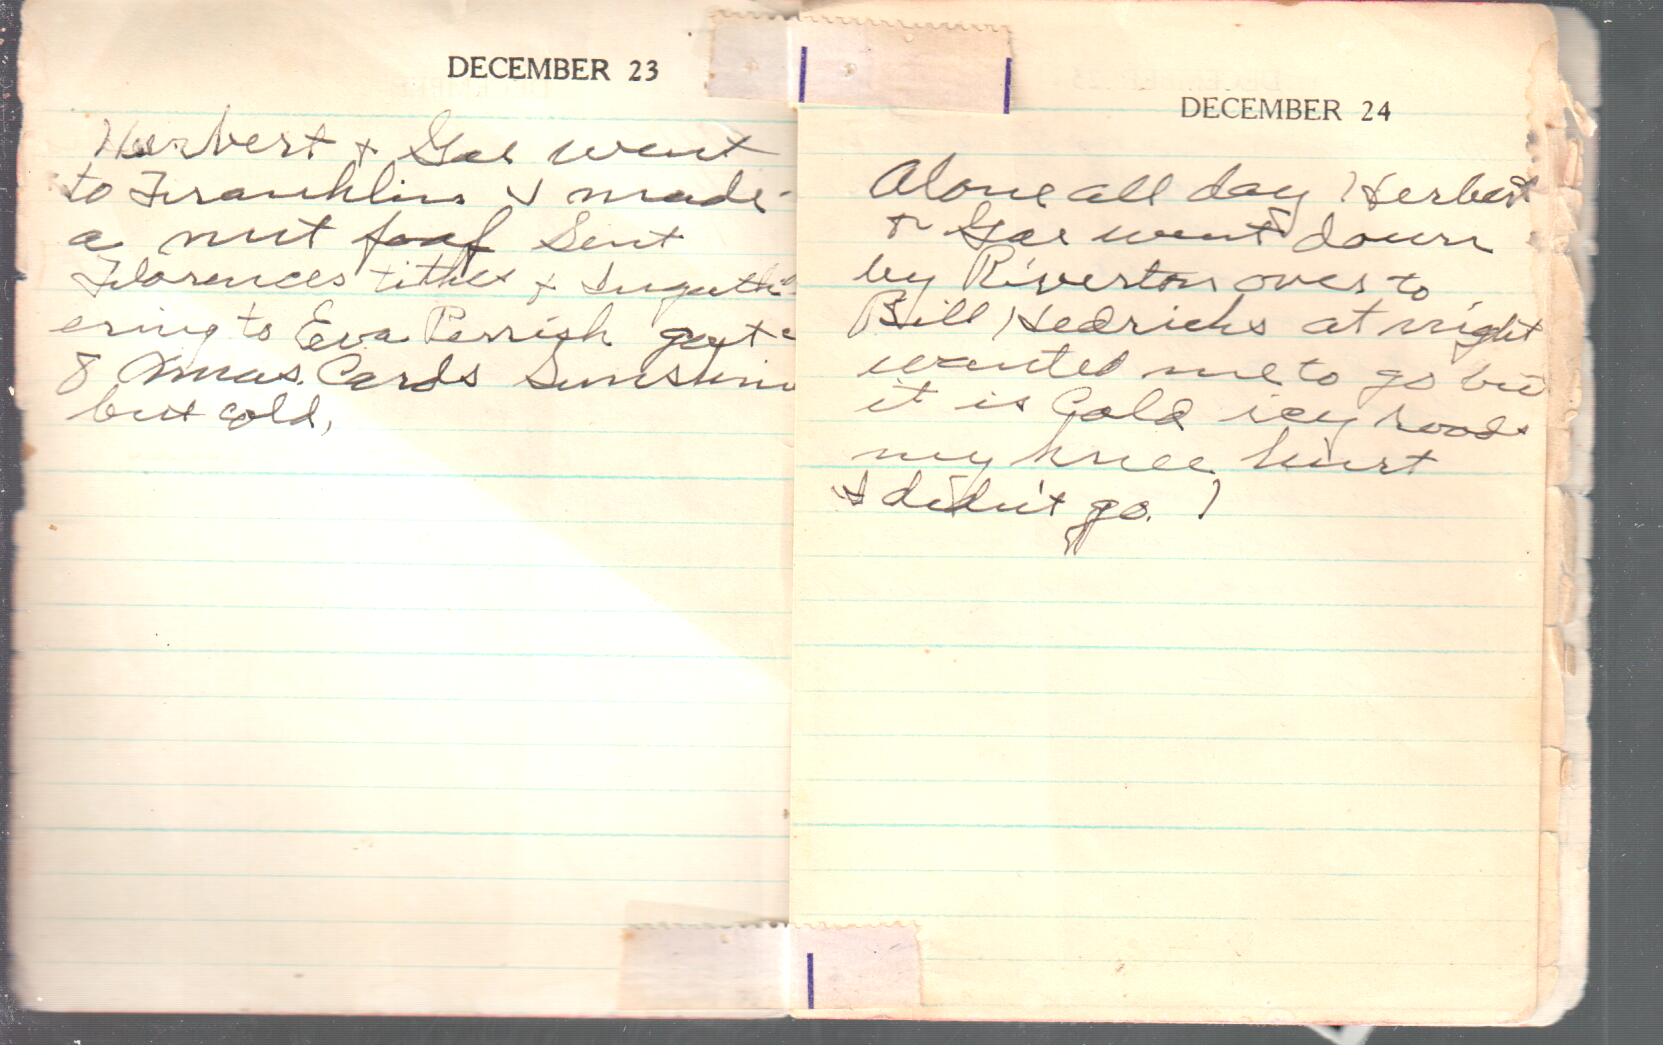 DECEMBER 23
Herbert + Gae went
to Franklin I made
a nut foaf Sent
Florences tithe + Ingath
ering to Eva Perrish got
8 Xmas. Cards Sunshine
but cold,
DECEMBER 24
Alone all day Herbert
+ Gae went down
by Riverton over to
Bill Hedricks at night
wanted me to go but
it is Cold icy roads
my knee hurt
I didn't go.